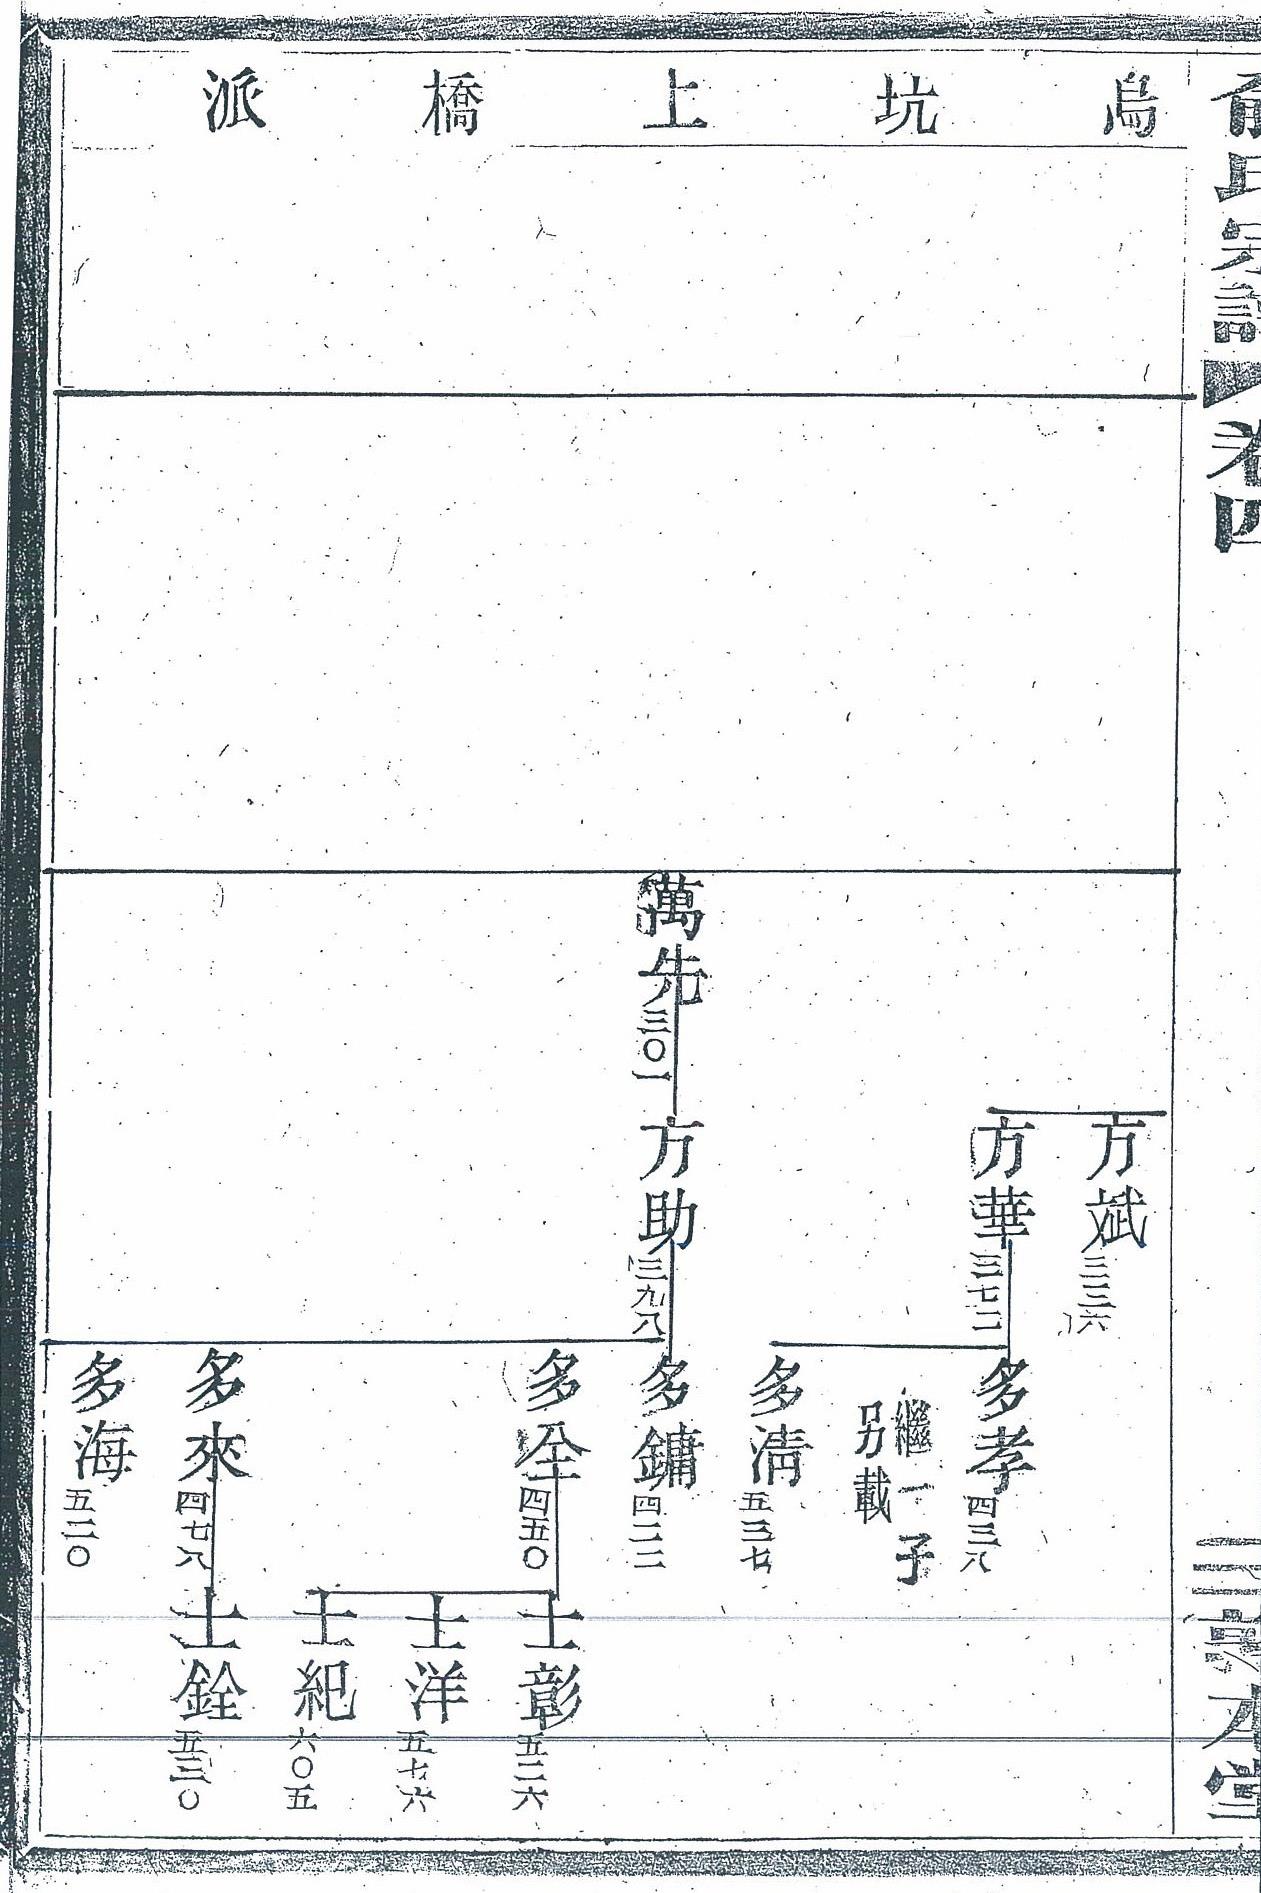 俞氏宗譜 卷四
敦本堂
烏坑上橋派
方斌 三三六
方華 三七二
多孝 四三八
繼一子
另載
多淸 五三七
萬先 三〇一
方助 三九八
多鏞 四二二
多全 四五〇
士彰 五二六
士洋 五七六
士紀 六〇五
多來 四七八
士銓 五三〇
多海 五二〇